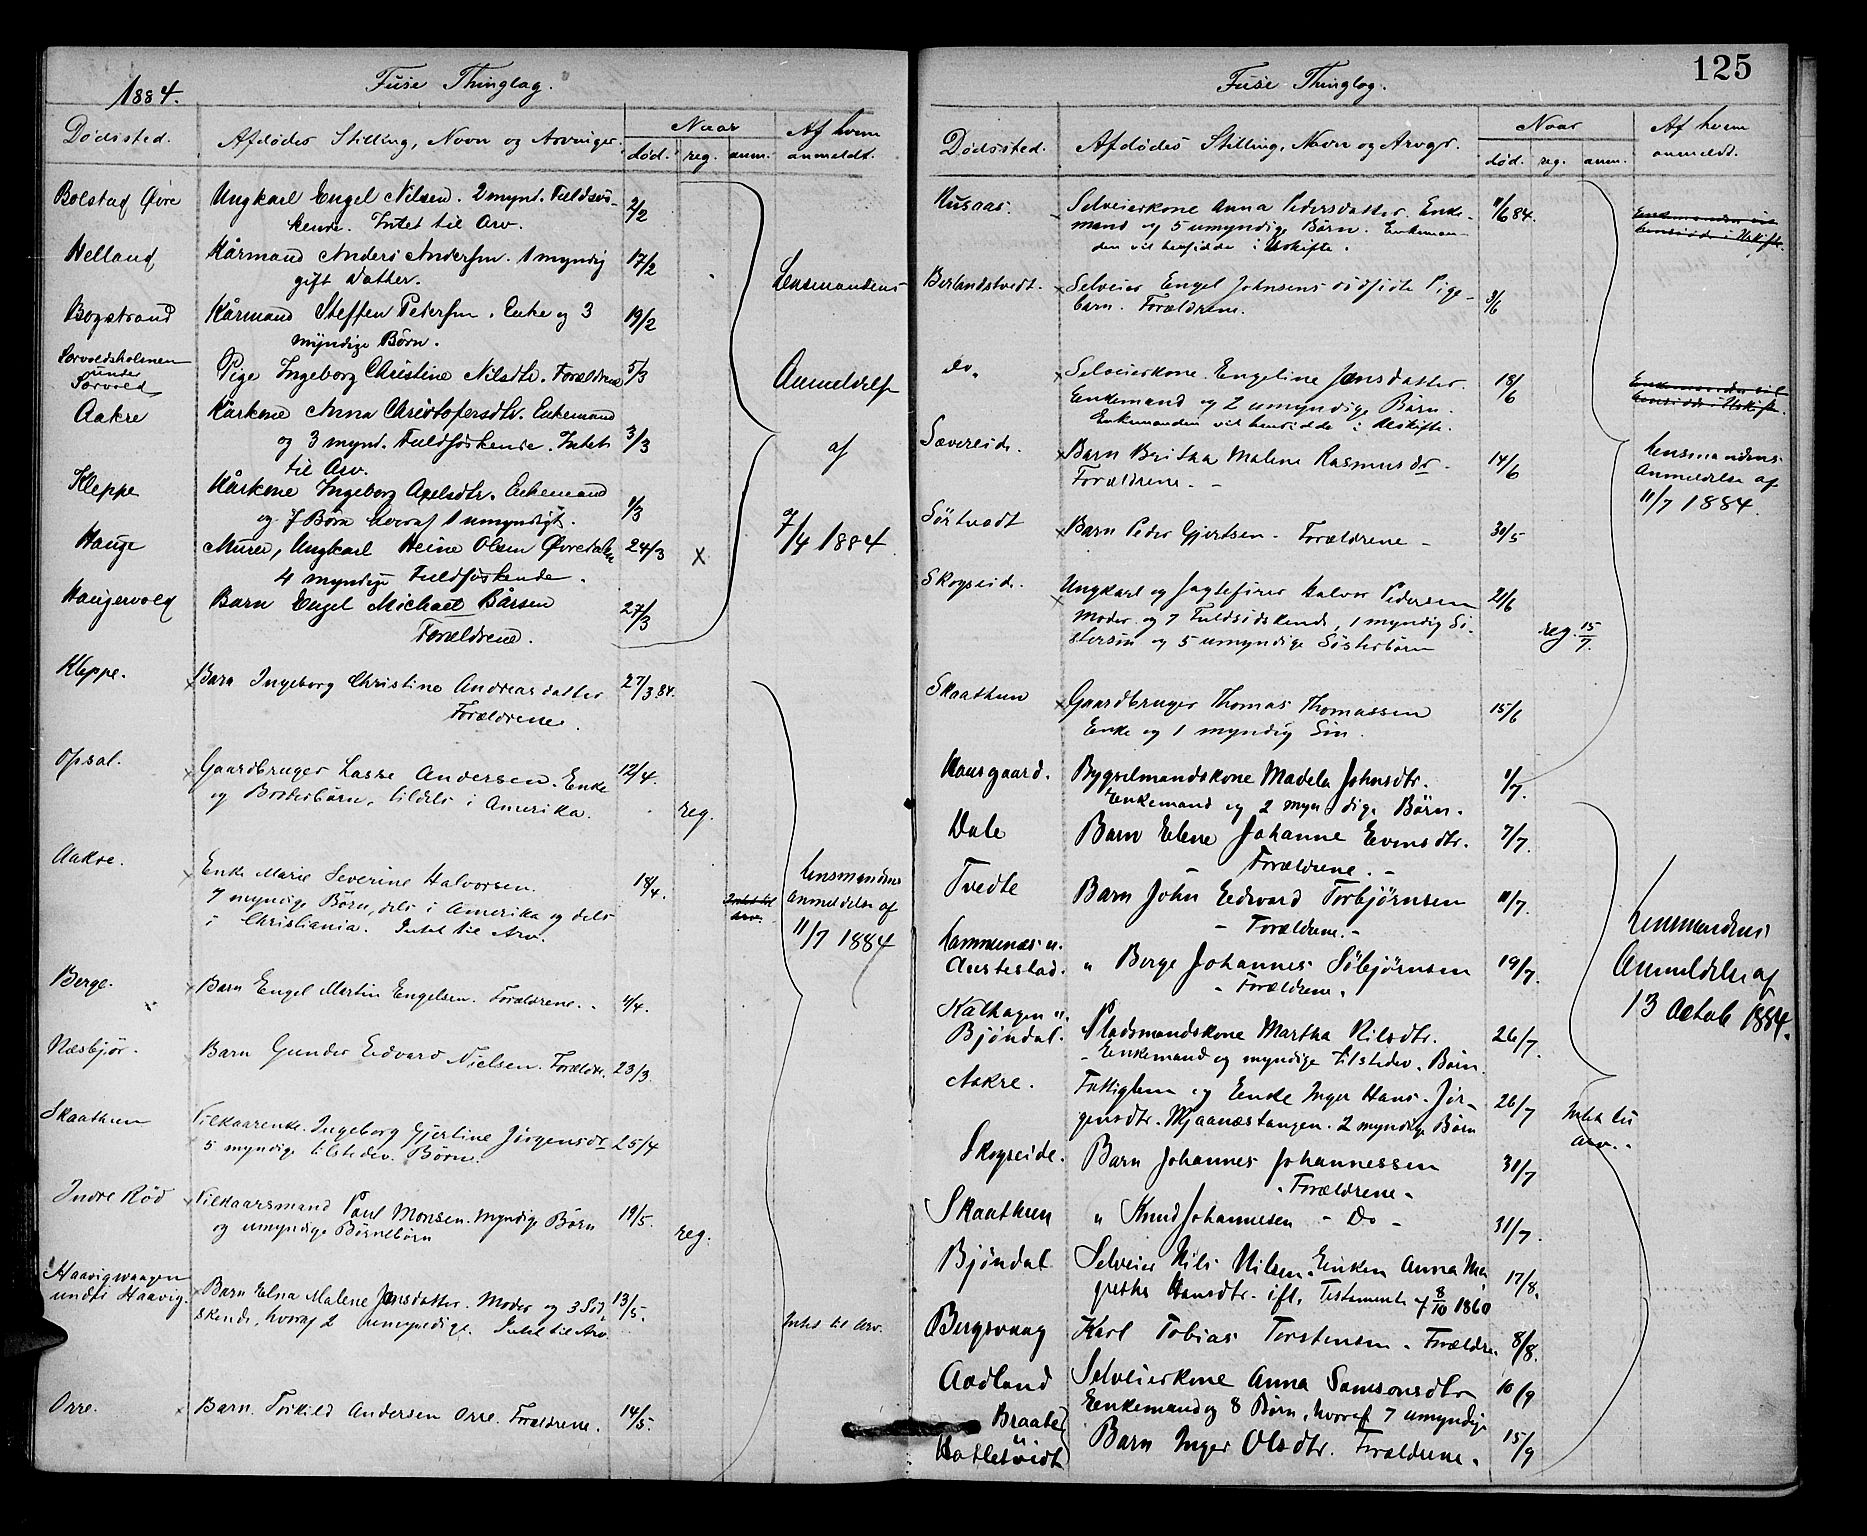 1884.
Fuse Thinglag.
Dødssted.
Afdødes Stilling, Navn og Arvinger.
Naar
død. reg. anm.
Af hvem
anmeldt.
Bolstad Øvre
Ungkarl Engel Nilsen. 2 mynd. Fuldsøs-
kende. Intet til Arv.
2/2
Helland
Kårmand Anders Andersen. 1 myndig
gift Datter.
17/2
Bogstrand
Kårmand Steffen Petersen. Enke og 3
myndige Børn.
19/2
Sørvoldsholmen
under
Sørvold
Pige Ingeborg Christine Nilsdtr. Forældrene
5/3
Aakre
Kårkone Anna Christofersdtr. Enkemand
og 3 mynd. Fuldsøskende. Intet
til Arv.
3/3
Kleppe
Kårkone Ingeborg Axelsdtr. Enkemand
og 7 Børn hvoraf 1 umyndigt.
1/3
Hauge
Murer, Ungkarl Heine Olsen Øvredalen
4 myndige Fuldsøskende.
24/3 X
Haugervold
Barn Engel Michael Bårsen
Forældrene.
27/3
Lensmandens
Anmeldelse
af
7/4 1884.
Kleppe.
x Barn Ingeborg Christine Andreasdatter
Forældrene.
27/3 84.
Opsal.
x Gaardbruger Lasse Andersen. Enke
og Broderbørn, tildels i Amerika.
12/4.
reg.
Aakre.
x Enke Marie Severine Halvorsen.
7 myndige Børn, dels i Amerika og dels
i Christiania. Intet til Arv.
18/4.
Intet til
Arv.
Berge.
x Barn Engel Martin Engelsen. Forældrene.
4/4.
Næsbjør.
Barn Gunder Edvard Nielsen. Forældr.
23/3.
Skaathun
Vilkaarenke. Ingeborg Gjertine Jørgensdt
5 myndige tilstedev. Børn.
25/4
Indre Rød
x Vilkaarsmand Paul Monsen. Myndige Børn
og umyndige Børnebørn
19/5.
reg.
Haavigvaagen
under Haavig.
x Barn Elna Malene Jansdatter. Moder og 3 Sød
skende, hvoraf 2 umyndige. Intet til Arv
13/5.
Intet til Arv.
Orre.
x Barn. Torkild Andersen Orre. Forældrene.
14/5.
Lensmandens
Anmeldelse af
11/7 1884
125
Fuse Thinglag.
Dødssted.
Afdødes Stilling, Navn og Arvgr.
Naar
død. reg. anm.
Af hvem
anmeldt.
Husaas.
Selveierkone Anna Pedersdatter. Enke-
mand og 5 umyndige Børn. Enkeman-
den vil hensidde i Uskifte.
11/6 84.
Enkemanden vil
hensidde i Uskifte.
Berlandstvedt.
x Selveier Engel Johnsens dødfødte Pige-
barn. Forældrene.
3/6
do.
x Selveierkone. Engeline Jansdatter.
Enkemand og 2 umyndige Børn.
Enkemanden vil hensidde i Uskifte.
18/6
Enkemanden vil
hensidde i Uskifte.
Sævereide.
x Barn Britha Malene Rasmusdr.
Forældrene. -
14/6
Sørtvedt
x Barn Peder Gjertsen. Forældrene -
30/5
Skogseide.
x Ungkarl og Jagtefører Halvor Pedersen
Moder og 7 Fuldsødskende, 1 myndig Sø-
stersøn og 5 umyndige Søsterbørn
21/6
reg. 15/7.
Skaathun
x Gaardbruger Thomas Thomassen
Enke og 1 myndig Søn.
15/6
Lensmandens
Anmeldelse af
11/7 1884.
Haursgaard.
Bygselmandskone Madela Johnsdtr.
Enkemand og 2 myndige Børn.
1/7.
Dale
Barn Elene Johanne Evensdtr.
- Forældrene. -
7/7.
Tvedte
Barn John Edvard Torbjørnsen
- Forældrene. -
11/7.
Austestad.
" Berge Johannes Sæbjørnsen
" Forældrene.
19/7.
Kalhagen u.
Bjøndal.
Pladsmandskone Martha Nilsdtr.
- Enkemand og myndige tilstedev. Børn.
26/7.
Aakre.
Fattiglem og Enke Inger Hans. Jør-
gensdtr. Mjaanæstangen. 2 myndige Børn
26/7
Intet til
Arv.
Skogseide.
Barn Johannes Johannessen
- Forældrene -
31/7
Skaathun
" Knud Johannesen - Do -
31/7.
Bjøndal
Selveier Nils Nilsen. Enken Anna Ma
grethe Hansdtr. ifl. Testamente af 8/10 1860
17/8.
Bergsvaag
Karl Tobias Torstensen. Forældre.
8/8.
Aadland
Selveierkone Anna Samsonsdtr
Enkemand og 8 Børn, hvoraf 7 umyndige
10/9
Braate
u
Hatletvedt
Barn Inger Olsdtr. Forældrene.
15/9
Lensmandens
Anmeldelse af
13 Octob 1884.